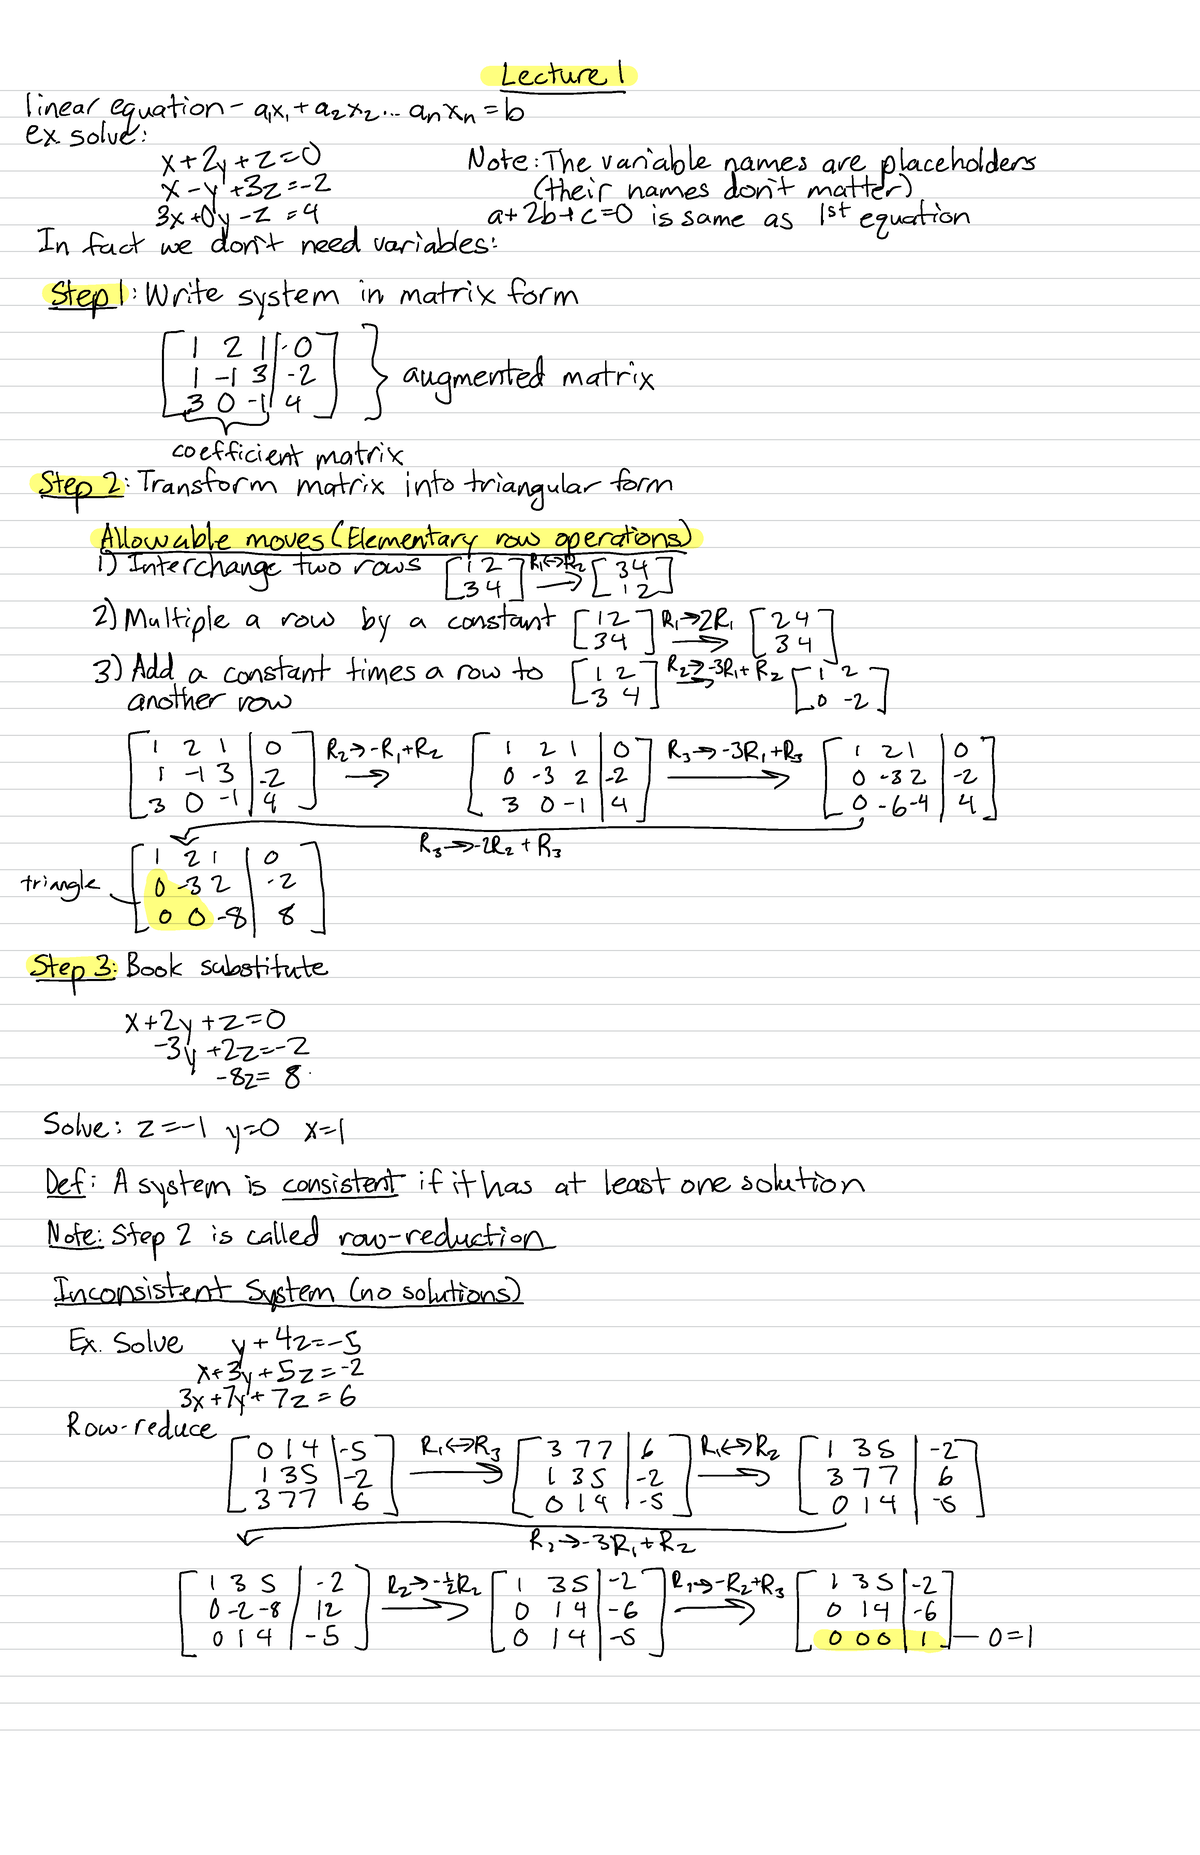 Lecture 1
linear equation - a₁x₁ + a₂x₂ ... aₙxₙ = b
ex solve:
x + 2y + z = 0
x - y + 3z = -2
3x + 0y - z = 4
Note: The variable names are placeholders
(their names don't matter)
a + 2b + c = 0 is same as 1st equation
In fact we don't need variables:
Step 1: Write system in matrix form
[1 2 1 | 0]
[1 -1 3 | -2]
[3 0 -1 | 4]
} augmented matrix
coefficient matrix
Step 2: Transform matrix into triangular form
Allowable moves (Elementary row operations)
1) Interchange two rows [1 2; 3 4] R₁↔R₂ → [3 4; 1 2]
2) Multiple a row by a constant [1 2; 3 4] R₁→2R₁ → [2 4; 3 4]
3) Add a constant times a row to [1 2; 3 4] R₂→-3R₁+R₂ [1 2; 0 -2]
another row
[1 2 1 | 0; 1 -1 3 | -2; 3 0 -1 | 4] R₂→-R₁+R₂ → [1 2 1 | 0; 0 -3 2 | -2; 3 0 -1 | 4] R₃→-3R₁+R₃ → [1 2 1 | 0; 0 -3 2 | -2; 0 -6 -4 | 4]
R₃→-2R₂+R₃
triangle [1 2 1 | 0; 0 -3 2 | -2; 0 0 -8 | 8]
Step 3: Book substitute
x + 2y + z = 0
-3y + 2z = -2
-8z = 8
Solve: z = -1 y = 0 x = 1
Def: A system is consistent if it has at least one solution
Note: Step 2 is called row-reduction
Inconsistent System (no solutions)
Ex. Solve y + 4z = -5
x + 3y + 5z = -2
3x + 7y + 7z = 6
Row-reduce
[0 1 4 | -5; 1 3 5 | -2; 3 7 7 | 6] R₁↔R₃ → [3 7 7 | 6; 1 3 5 | -2; 0 1 4 | -5] R₁↔R₂ → [1 3 5 | -2; 3 7 7 | 6; 0 1 4 | -5]
R₂→-3R₁+R₂
[1 3 5 | -2; 0 -2 -8 | 12; 0 1 4 | -5] R₂→-½R₂ → [1 3 5 | -2; 0 1 4 | -6; 0 1 4 | -5] →-R₂+R₃ → [1 3 5 | -2; 0 1 4 | -6; 0 0 0 | 1] — 0=1